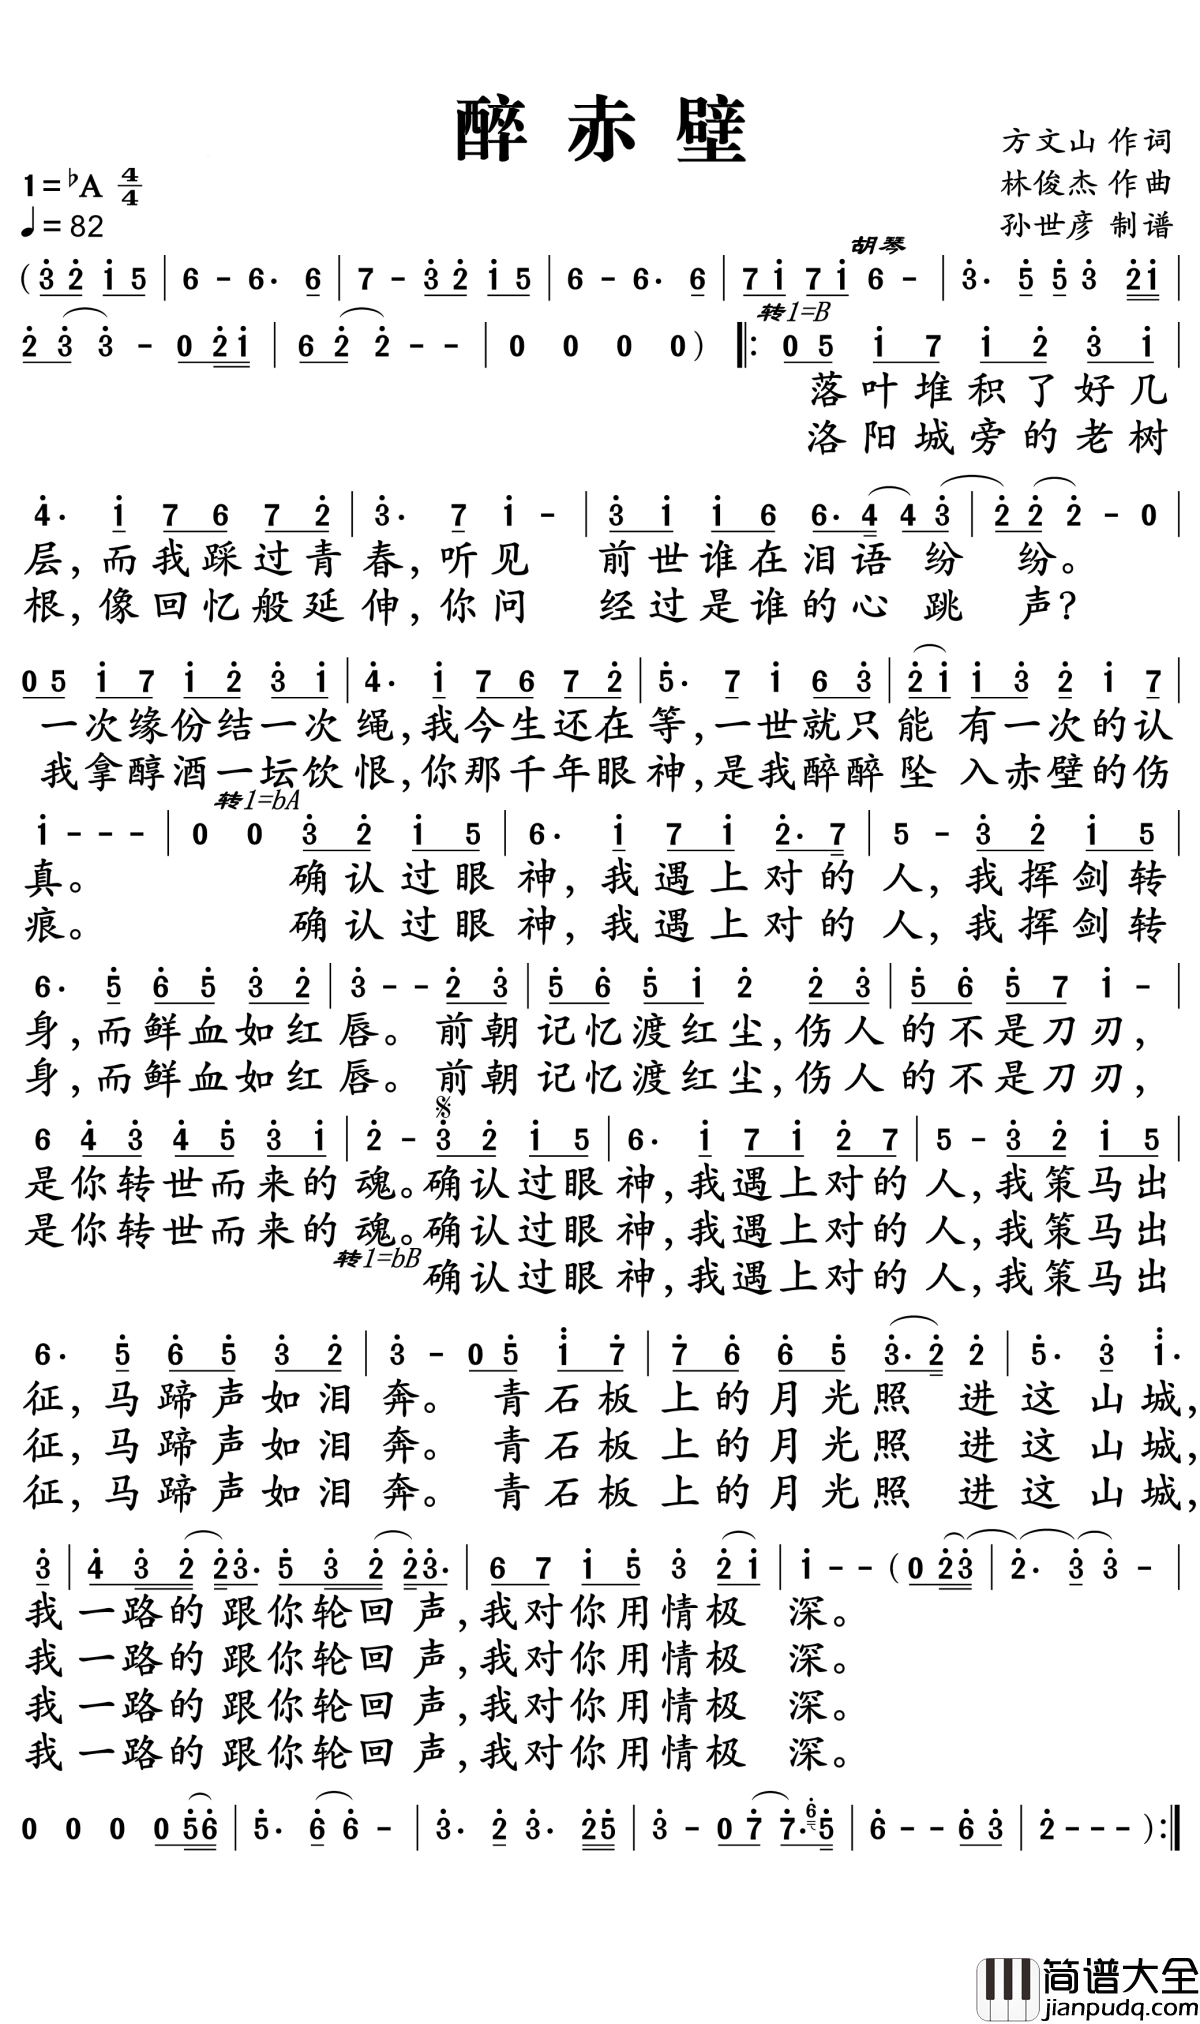 醉赤壁
方文山 作词
1=♭A 4/4
林俊杰 作曲
♩=82
孙世彦 制谱
胡琴
(3 2 1 5 | 6 - 6. 6 | 7 - 3 2 1 5 | 6 - 6. 6 | 7 1 7 1 6 - | 3. 5 5 3 2 1 |
转1=B
2 3 3 - 0 2 1 | 6 2 2 - - | 0 0 0 0 ) ‖: 0 5 1 7 1 2 3 1 |
落叶堆积了好几
洛阳城旁的老树
4. 1 7 6 7 2 | 3. 7 1 - | 3 1 1 6 6. 4 4 3 | 2 2 2 - 0 |
层,而我踩过青春,听见 前世谁在泪语纷 纷。
根,像回忆般延伸,你问 经过是谁的心跳 声?
0 5 1 7 1 2 3 1 | 4. 1 7 6 7 2 | 5. 7 1 6 3 | 2 1 1 3 2 1 7 |
一次缘份结一次绳,我今生还在等,一世就只能 有一次的认
我拿醇酒一坛饮恨,你那千年眼神,是我醉醉坠 入赤壁的伤
转1=bA
1 - - - | 0 0 3 2 1 5 | 6. 1 7 1 2. 7 | 5 - 3 2 1 5 |
真。 确认过眼神,我遇上对的人,我挥剑转
痕。 确认过眼神,我遇上对的人,我挥剑转
6. 5 6 5 3 2 | 3 - - 2 3 | 5 6 5 1 2 2 3 | 5 6 5 7 1 - |
身,而鲜血如红唇。前朝记忆渡红尘,伤人的不是刀刃,
身,而鲜血如红唇。前朝记忆渡红尘,伤人的不是刀刃,
6 4 3 4 5 3 1 | 2 - 3 2 1 5 | 6. 1 7 1 2 7 | 5 - 3 2 1 5 |
是你转世而来的魂。确认过眼神,我遇上对的人,我策马出
是你转世而来的魂。确认过眼神,我遇上对的人,我策马出
转1=bB
确认过眼神,我遇上对的人,我策马出
6. 5 6 5 3 2 | 3 - 0 5 1 7 | 7 6 6 5 3. 2 2 | 5. 3 1.
征,马蹄声如泪奔。 青石板上的月光照 进这山城,
征,马蹄声如泪奔。 青石板上的月光照 进这山城,
征,马蹄声如泪奔。 青石板上的月光照 进这山城,
3 | 4 3 2 2 3. 5 3 2 2 3. | 6 7 1 5 3 2 1 | 1 - - ( 0 2 3 | 2. 3 3 - |
我一路的跟你轮回声,我对你用情极 深。
我一路的跟你轮回声,我对你用情极 深。
我一路的跟你轮回声,我对你用情极 深。
我一路的跟你轮回声,我对你用情极 深。
0 0 0 0 5 6 | 5. 6 6 - | 3. 2 3. 2 5 | 3 - 0 7 7. 6 5 | 6 - - 6 3 | 2 - - - ) :‖
简谱大全
jianpudq.com